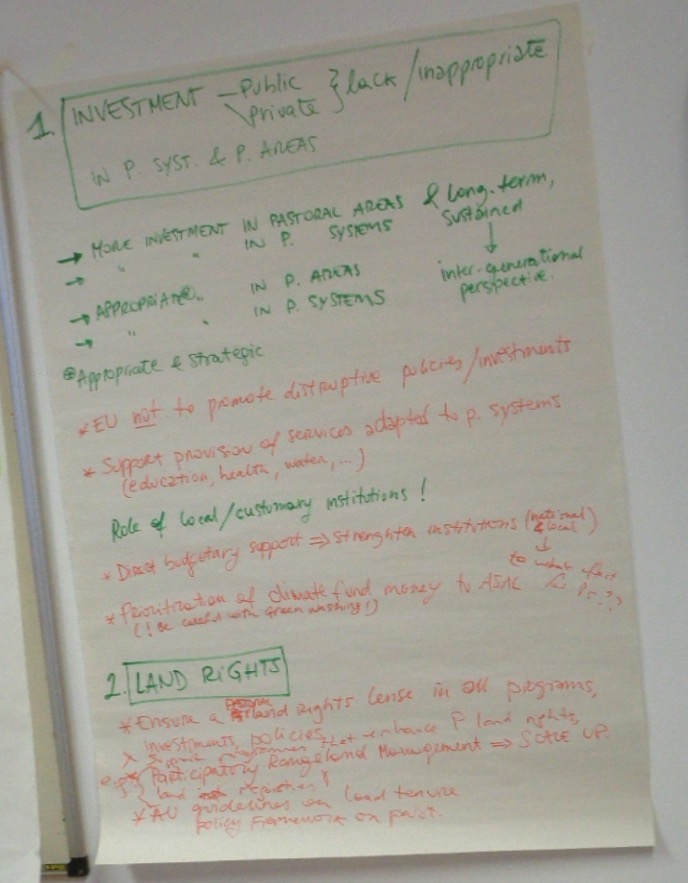 1. INVESTMENT - Public } lack / inappropriate
\ private
IN P. SYST. & P. AREAS
→ MORE INVESTMENT IN PASTORAL AREAS & long-term,
→ " " IN P. SYSTEMS sustained
↓
→ APPROPRIATE⊕ " IN P. AREAS inter-generational
→ " " IN P. SYSTEMS perspective.
⊕ Appropriate & strategic
* EU not to promote disruptive policies/investments
* Support provision of services adapted to p. systems
(education, health, water, ...)
Role of local/customary institutions!
* Direct budgetary support ⇒ strenghten institutions (national
& local)
↓
to what
* Prioritization of climate fund money to ASAL
(! Be careful with green washing!)
2. LAND RIGHTS
* Ensure a land rights lense in all programs,
investments, policies
* Support programmes that enhance P land rights,
e.g. Participatory Rangeland Management ⇒ SCALE UP.
land
* AU guidelines on land tenure
policy framework on past.